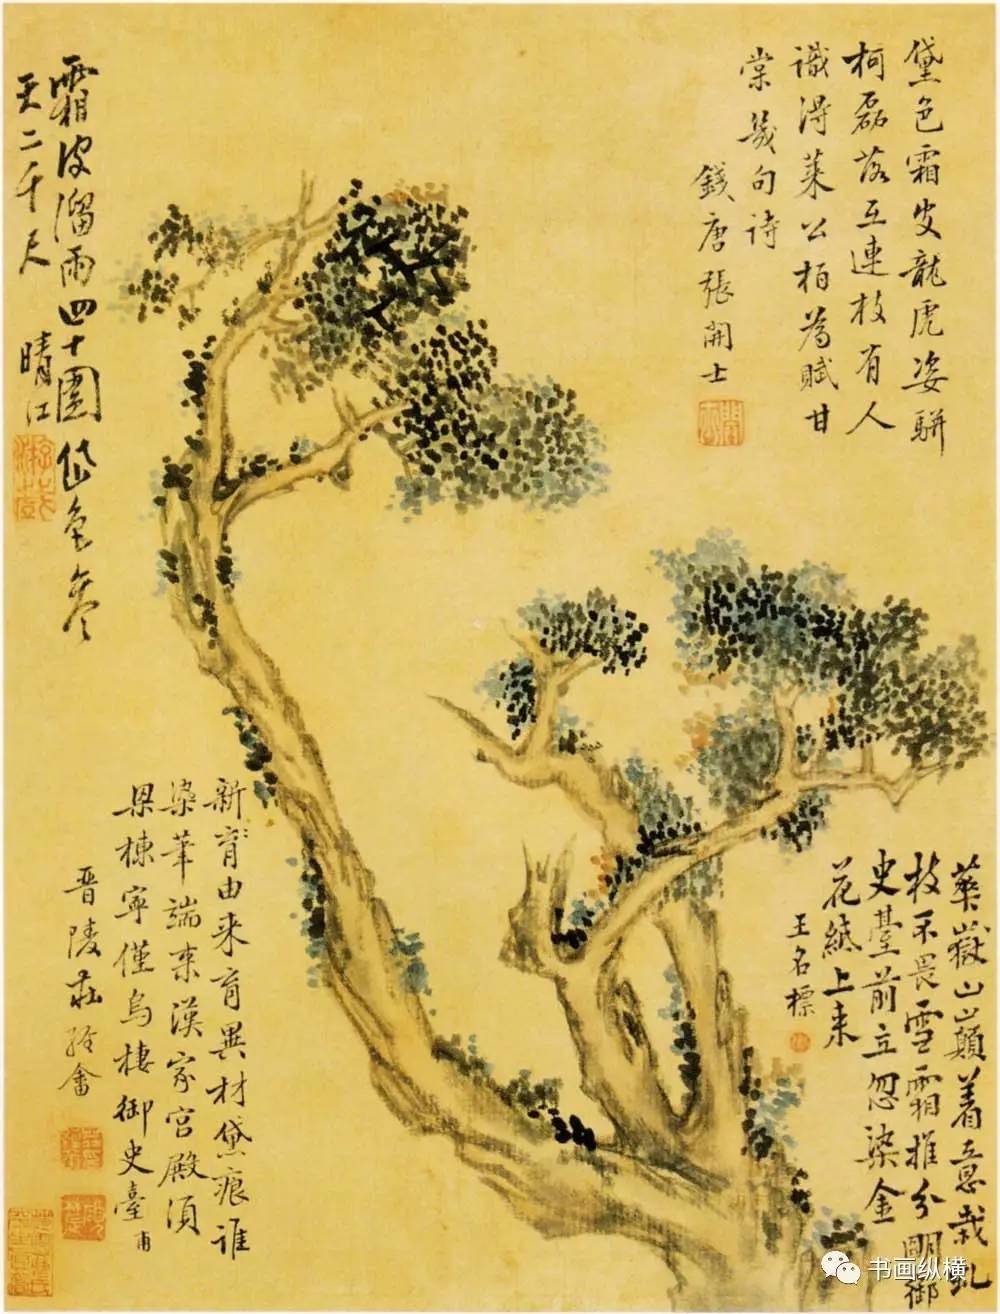 黛色霜皮龍虎姿駢
柯磊落互連枝有人
識得萊公柏為賦甘
棠幾句詩
錢唐張開士
霜皮溜雨四十圍黛色參
天二千尺
晴江
新甫由来育異材黛痕誰
染華端来漢家宮殿須
梁棟寧僅烏棲御史臺
甫
晋陵莊
華嶽山巔着意栽虬
枝不畏雪霜摧分明御
史臺前立忽染金
花紙上来
王名標
书画纵横